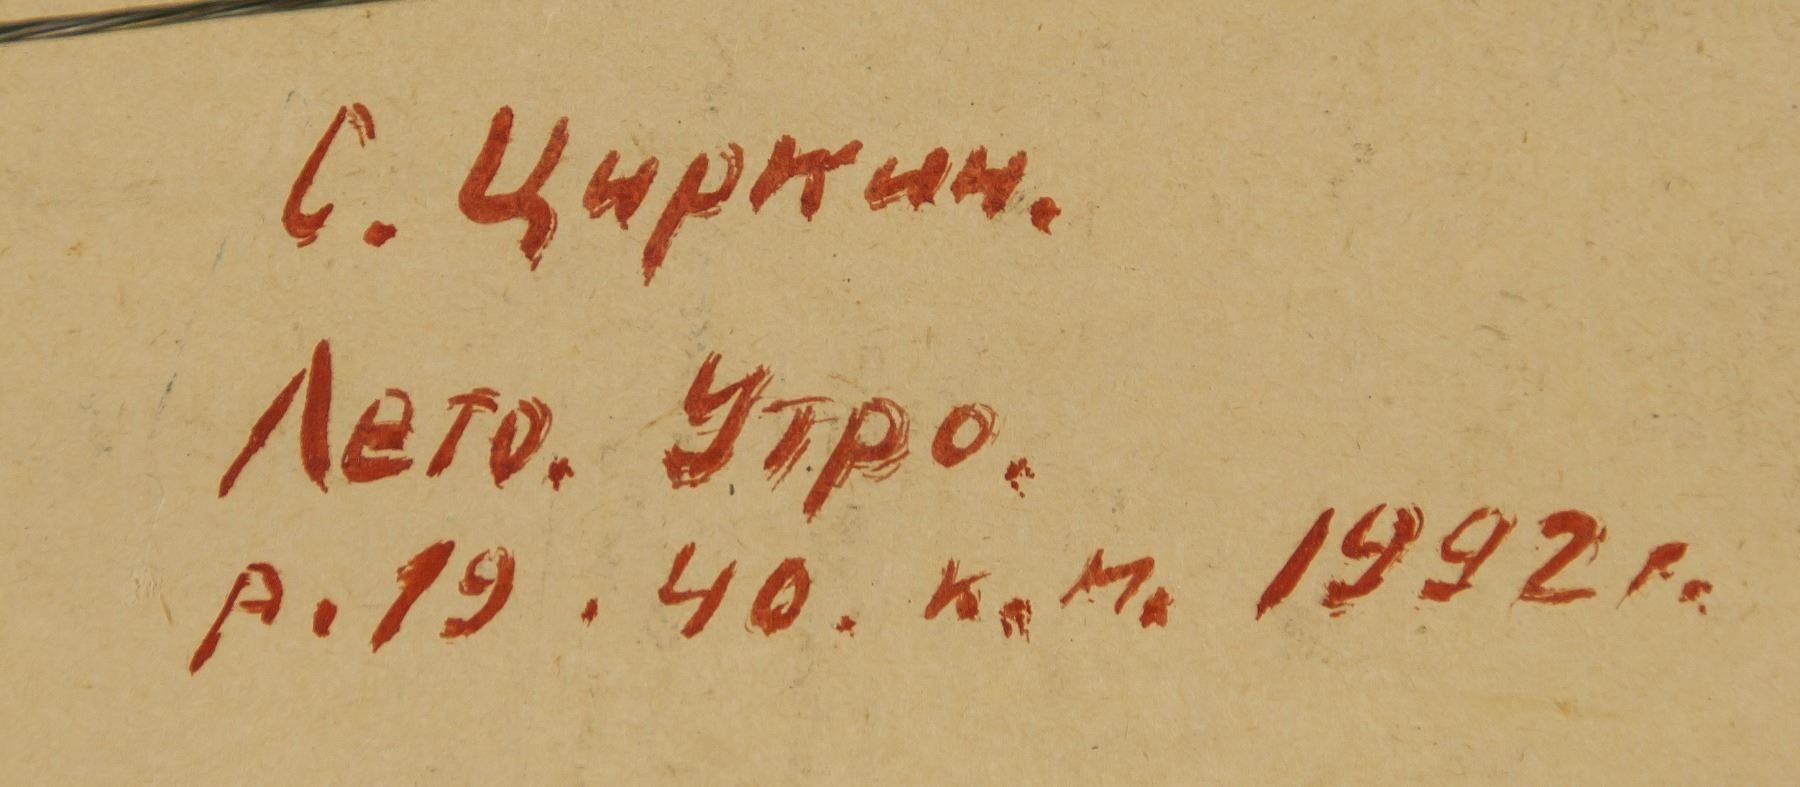 С. Циркин.
Лето. Утро.
р. 19. 40. к. м. 1992 г.